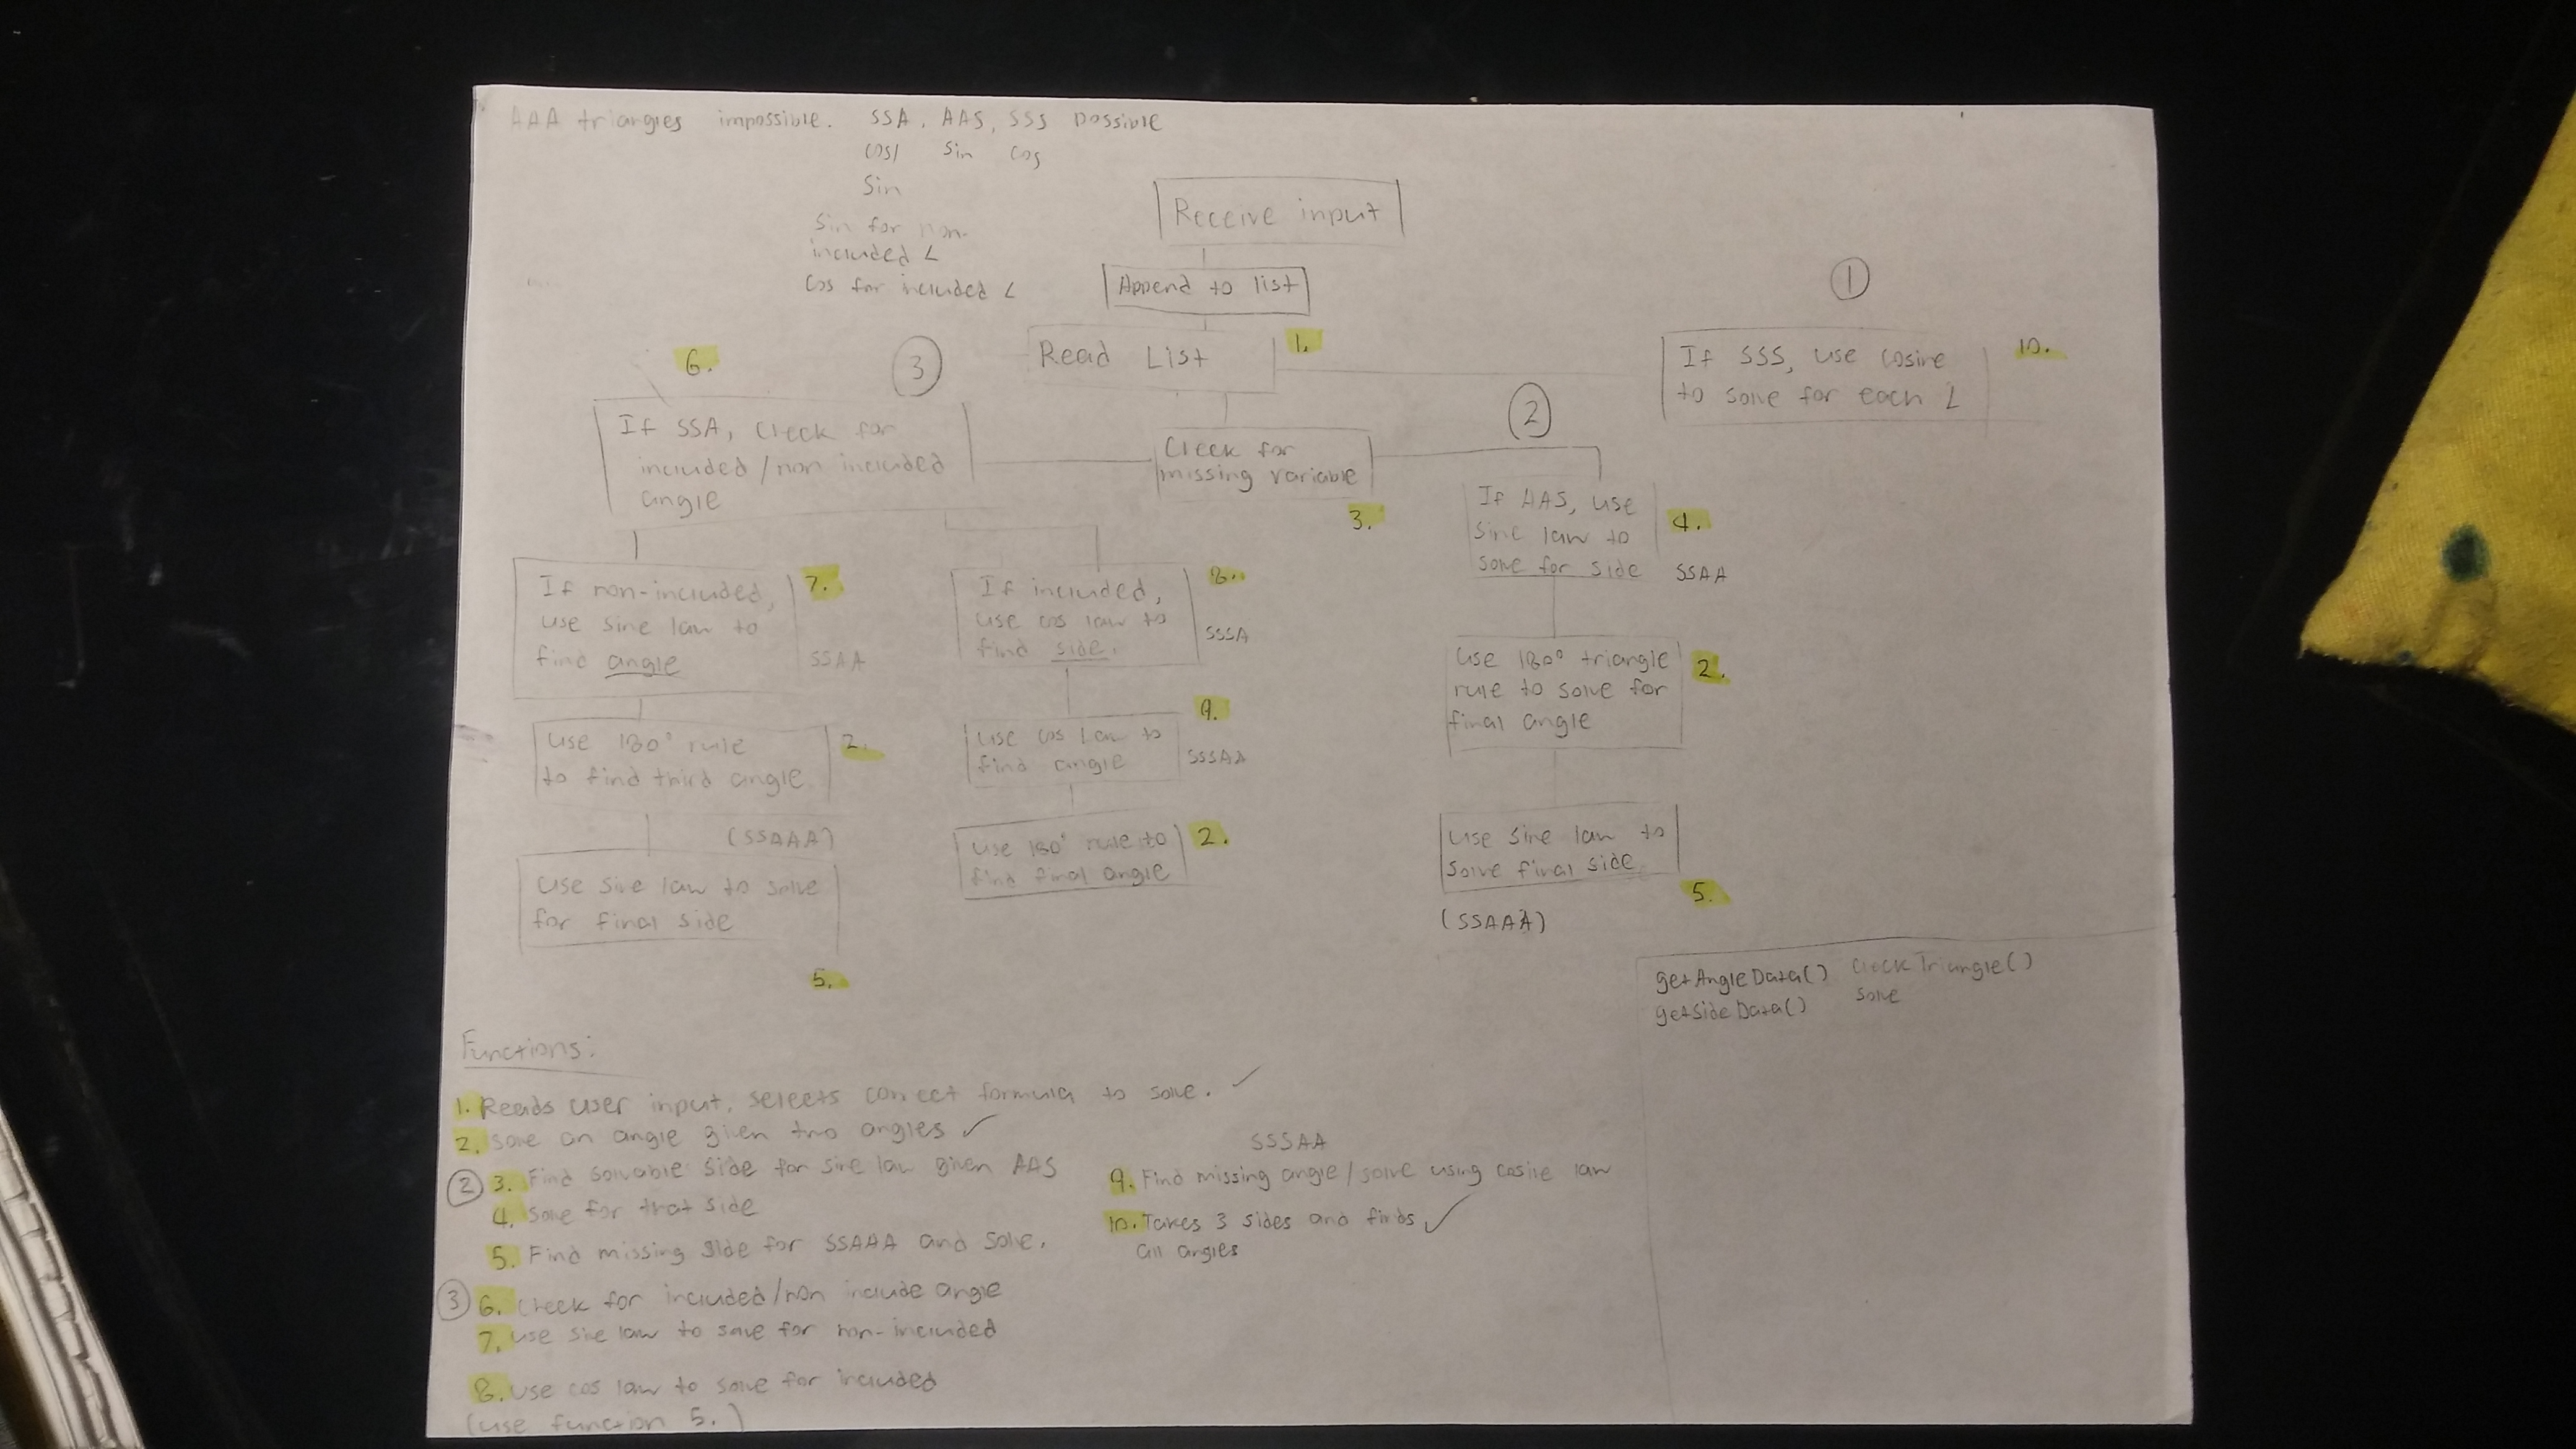 AAA triangles impossible. SSA, AAS, SSS possible
cos/ sin cos
sin
sin for non-
included ∠
cos for included ∠
Receive input
Append to list
Read List
1.
①
If SSS, use cosine
to solve for each ∠
10.
6.
③
If SSA, check for
included/non included
angle
Check for
missing variable
3.
②
If AAS, use
sine law to
solve for side
4.
SSAA
If non-included,
use sine law to
find angle
7.
SSAA
If included,
use cos law to
find side.
8.
SSSA
use 180° triangle
rule to solve for
final angle
2.
use 180° rule
to find third angle
2.
(SSAAA)
use cos law to
find angle
9.
SSSAA
use 180° rule to
find final angle
2.
use sine law to
solve final side
5.
(SSAAA)
use sine law to solve
for final side
5.
getAngleData() checkTriangle()
getSideData() solve
Functions:
1. Reads user input, selects correct formula to solve. ✓
2. solve an angle given two angles ✓
② 3. Find solvable side for sine law given AAS
4. solve for that side
5. Find missing side for SSAAA and solve.
③ 6. check for included/non include angle
7. use sine law to solve for non-included
8. use cos law to solve for included
(use function 5.)
SSSAA
9. Find missing angle/solve using cosine law
10. Takes 3 sides and finds ✓
all angles